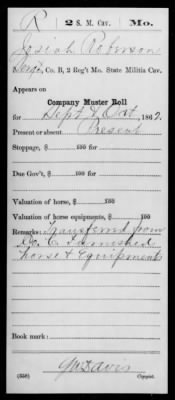 R 2 S. M. Cav. Mo.
Josiah Robinson
Sergt, Co. B, 2 Reg't Mo. State Militia Cav.
Appears on
Company Muster Roll
for Sept & Oct, 1862.
Present or absent Present
Stoppage, $ 100 for
Due Gov't, $ 100 for
Valuation of horse, $ 100
Valuation of horse equipments, $ 100
Remarks: Transferred from
Co. E. Furnished
horse & Equipments
Book mark:
(358)
G W Davis
Copyist.